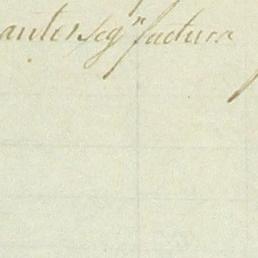 antes seg.n factura